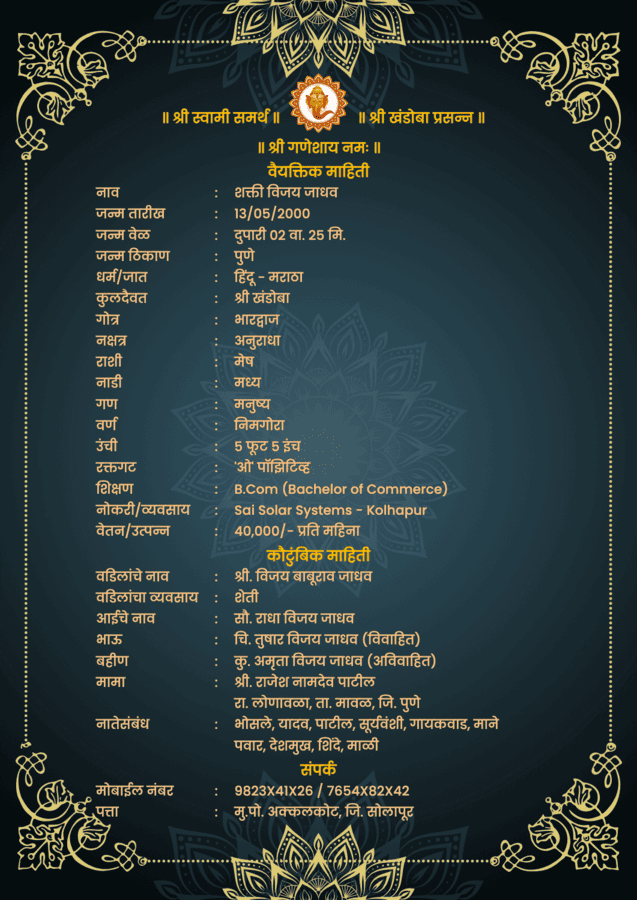 ॥ श्री स्वामी समर्थ ॥ ॥ श्री खंडोबा प्रसन्न ॥
॥ श्री गणेशाय नमः ॥
वैयक्तिक माहिती
नाव : शक्ती विजय जाधव
जन्म तारीख : 13/05/2000
जन्म वेळ : दुपारी 02 वा. 25 मि.
जन्म ठिकाण : पुणे
धर्म/जात : हिंदू - मराठा
कुलदैवत : श्री खंडोबा
गोत्र : भारद्वाज
नक्षत्र : अनुराधा
राशी : मेष
नाडी : मध्य
गण : मनुष्य
वर्ण : निमगोरा
उंची : 5 फूट 5 इंच
रक्तगट : 'ओ' पॉझिटिव्ह
शिक्षण : B.Com (Bachelor of Commerce)
नोकरी/व्यवसाय : Sai Solar Systems - Kolhapur
वेतन/उत्पन्न : 40,000/- प्रति महिना
कौटुंबिक माहिती
वडिलांचे नाव : श्री. विजय बाबूराव जाधव
वडिलांचा व्यवसाय : शेती
आईचे नाव : सौ. राधा विजय जाधव
भाऊ : चि. तुषार विजय जाधव (विवाहित)
बहीण : कु. अमृता विजय जाधव (अविवाहित)
मामा : श्री. राजेश नामदेव पाटील
रा. लोणावळा, ता. मावळ, जि. पुणे
नातेसंबंध : भोसले, यादव, पाटील, सूर्यवंशी, गायकवाड, माने
पवार, देशमुख, शिंदे, माळी
संपर्क
मोबाईल नंबर : 9823X41X26 / 7654X82X42
पत्ता : मु.पो. अक्कलकोट, जि. सोलापूर